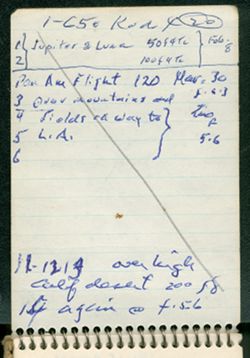 1-65e Kod (20)
1 } Jupiter & Luna 50 f4Tc } Feb. 8
2 100 f4Tc
Pan Am Flight 120 Mar. 30
3 Over mountains and f. 6.3
4 fields on way to
5 L.A. 5.6
6
11-12 14 over high
calif desert 200
again @ f. 5.6